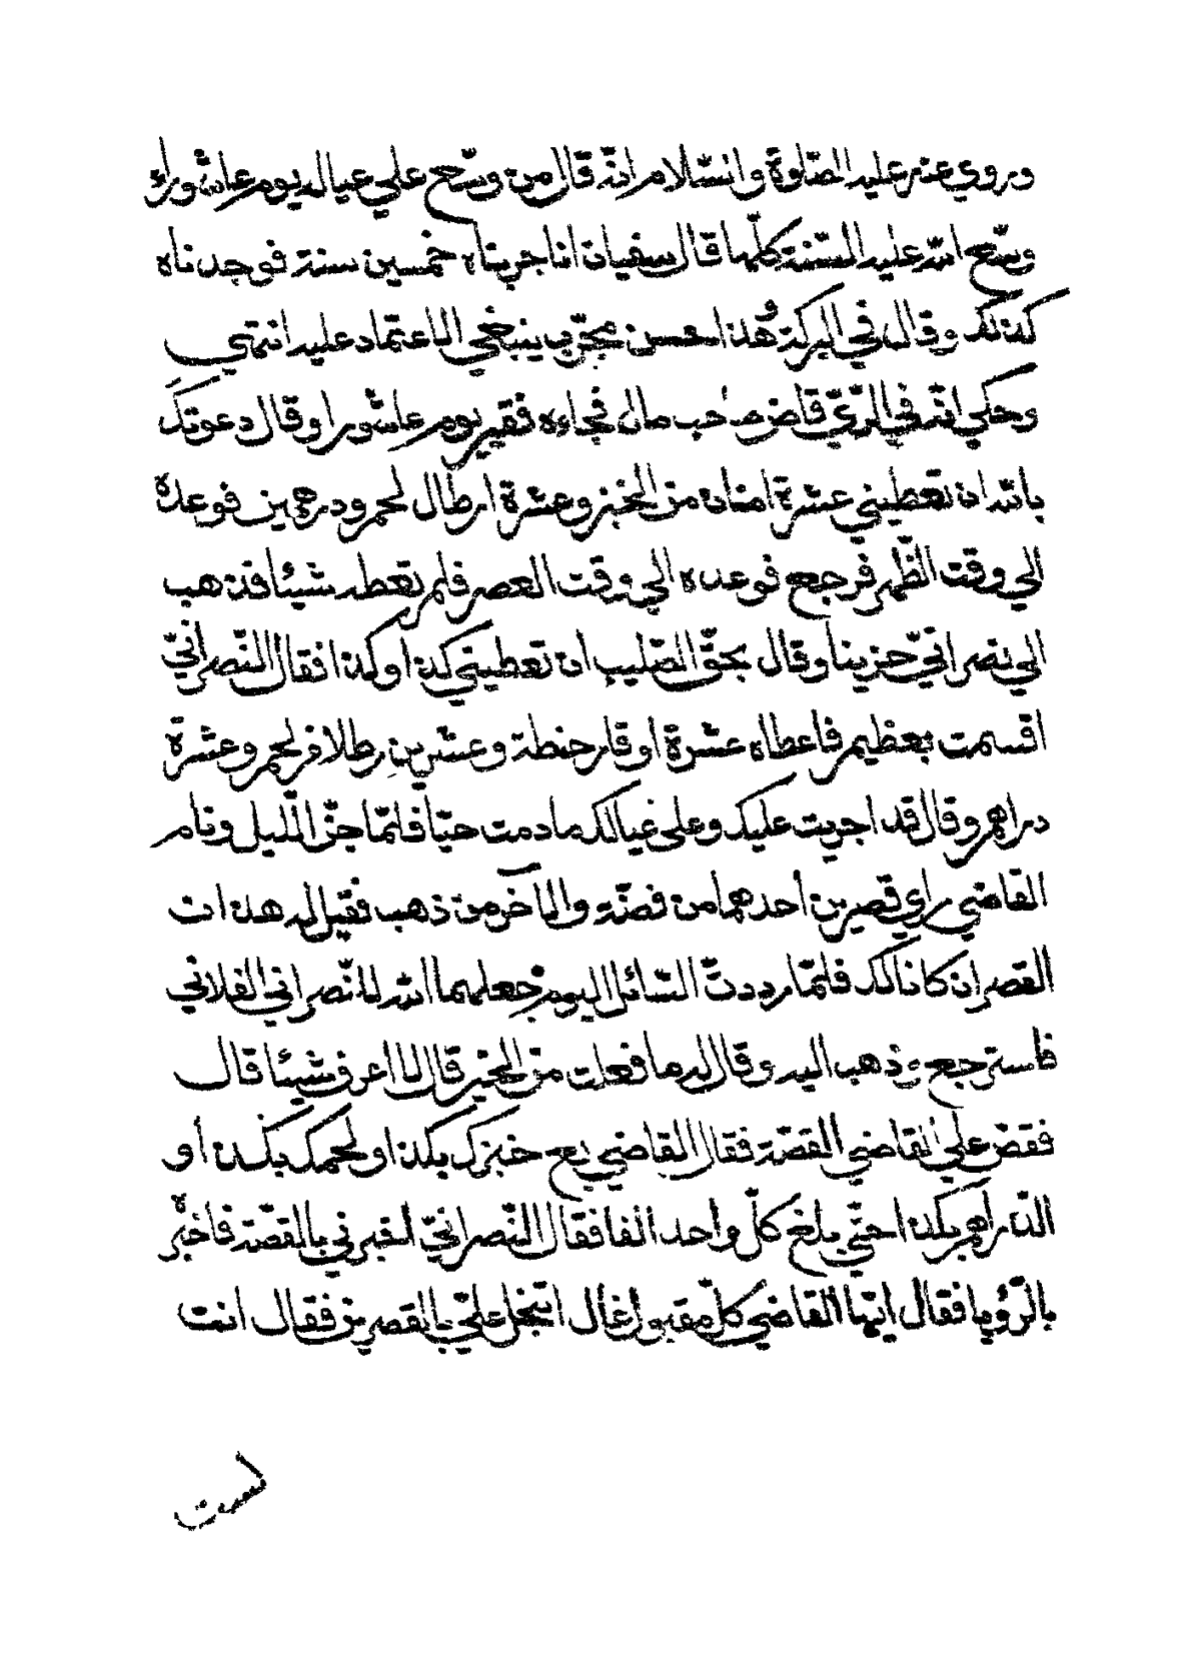 وروي عنه عليه الصّلوة والسّلام انّه قال من وسّع علي عياله يوم عاشوراء
وسّع الله عليه السّنة كلّها قال سفيان انا جربناه خمسين سنة فوجدناه
كذلك وقال في البركة هذا حسن مجرّب ينبغي الاعتماد عليه انتهي
وحكي انّه في الرّيّ قاض صاحب مال فجاءه فقير يوم عاشورا وقال دعوتك
بالله ان تعطيني عشرة امنان من الخبز وعشرة ارطال لحم ودرهمين فوعده
الي وقت الظّهر فرجع فوعده الي وقت العصر فلم تعطه شيئا فذهب
الي نصرانيّ حزينا وقال بحقّ الصّليب ان تعطيني كذا وكذا فقال النّصرانيّ
اقسمت بعظيم فاعطاه عشرة اوقار حنطة وعشرين رطلا من لحم وعشرة
دراهم وقال قد اجريت عليك وعلى عيالك ما دمت حيّا فلمّا جنّ اللّيل ونام
القاضي راي قصرين أحدهما من فضّة والآخر من ذهب فقيل له هذان
القصران كانا لك فلمّا رددتّ السّائل اليوم جعلهما الله للنّصراني الفلاني
فاسترجع وذهب اليه وقال له ما فعلت من الخير قال لا اعرف شيئا قال
فقصّ علي القاضي القصّة فقال القاضي بع خبزك بكذا ولحمك بكذا أو
الدّراهم بكذا حتّي بلغ كلّ واحد الفا فقال النّصرانيّ أخبرني بالقصّة فاخبره
بالرّؤيا فقال ايّها القاضي كلّ مقبول غال اتبخل عليّ بالقصرين فقال انت
لست